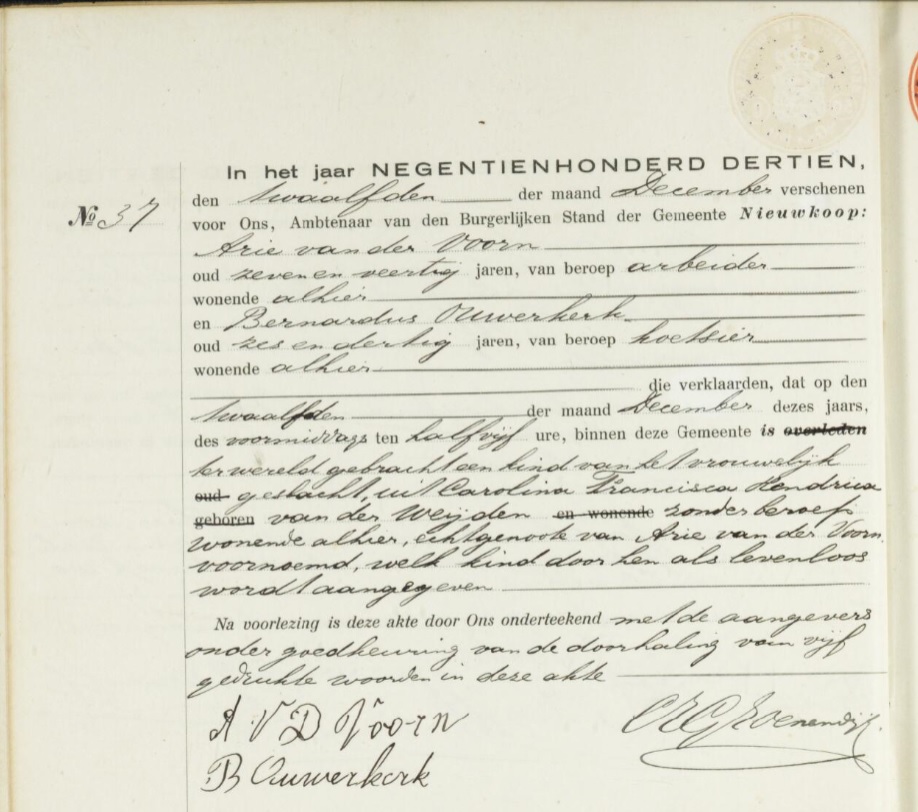 In het jaar NEGENTIENHONDERD DERTIEN,
den twaalfden der maand December verschenen
No 37
voor Ons, Ambtenaar van den Burgerlijken Stand der Gemeente Nieuwkoop:
Arie van der Voorn
oud zeven en veertig jaren, van beroep arbeider
wonende alhier
en Bernardus Ouwerkerk
oud zes en dertig jaren, van beroep koetsier
wonende alhier
die verklaarden, dat op den
twaalfden der maand December dezes jaars,
des voormiddags ten half vijf ure, binnen deze Gemeente is overleden
ter wereld gebracht een kind van het vrouwelijk
oud geslacht, uit Carolina Francisca Hendrica
geboren van der Weijden en wonende zonder beroep
wonende alhier, echtgenoote van Arie van der Voorn
voornoemd, welk kind door hen als levenloos
wordt aangegeven
Na voorlezing is deze akte door Ons onderteekend met de aangevers
onder goedkeuring van de doorhaling van vijf
gedrukte woorden in deze akte
A V D Voorn
B Ouwerkerk